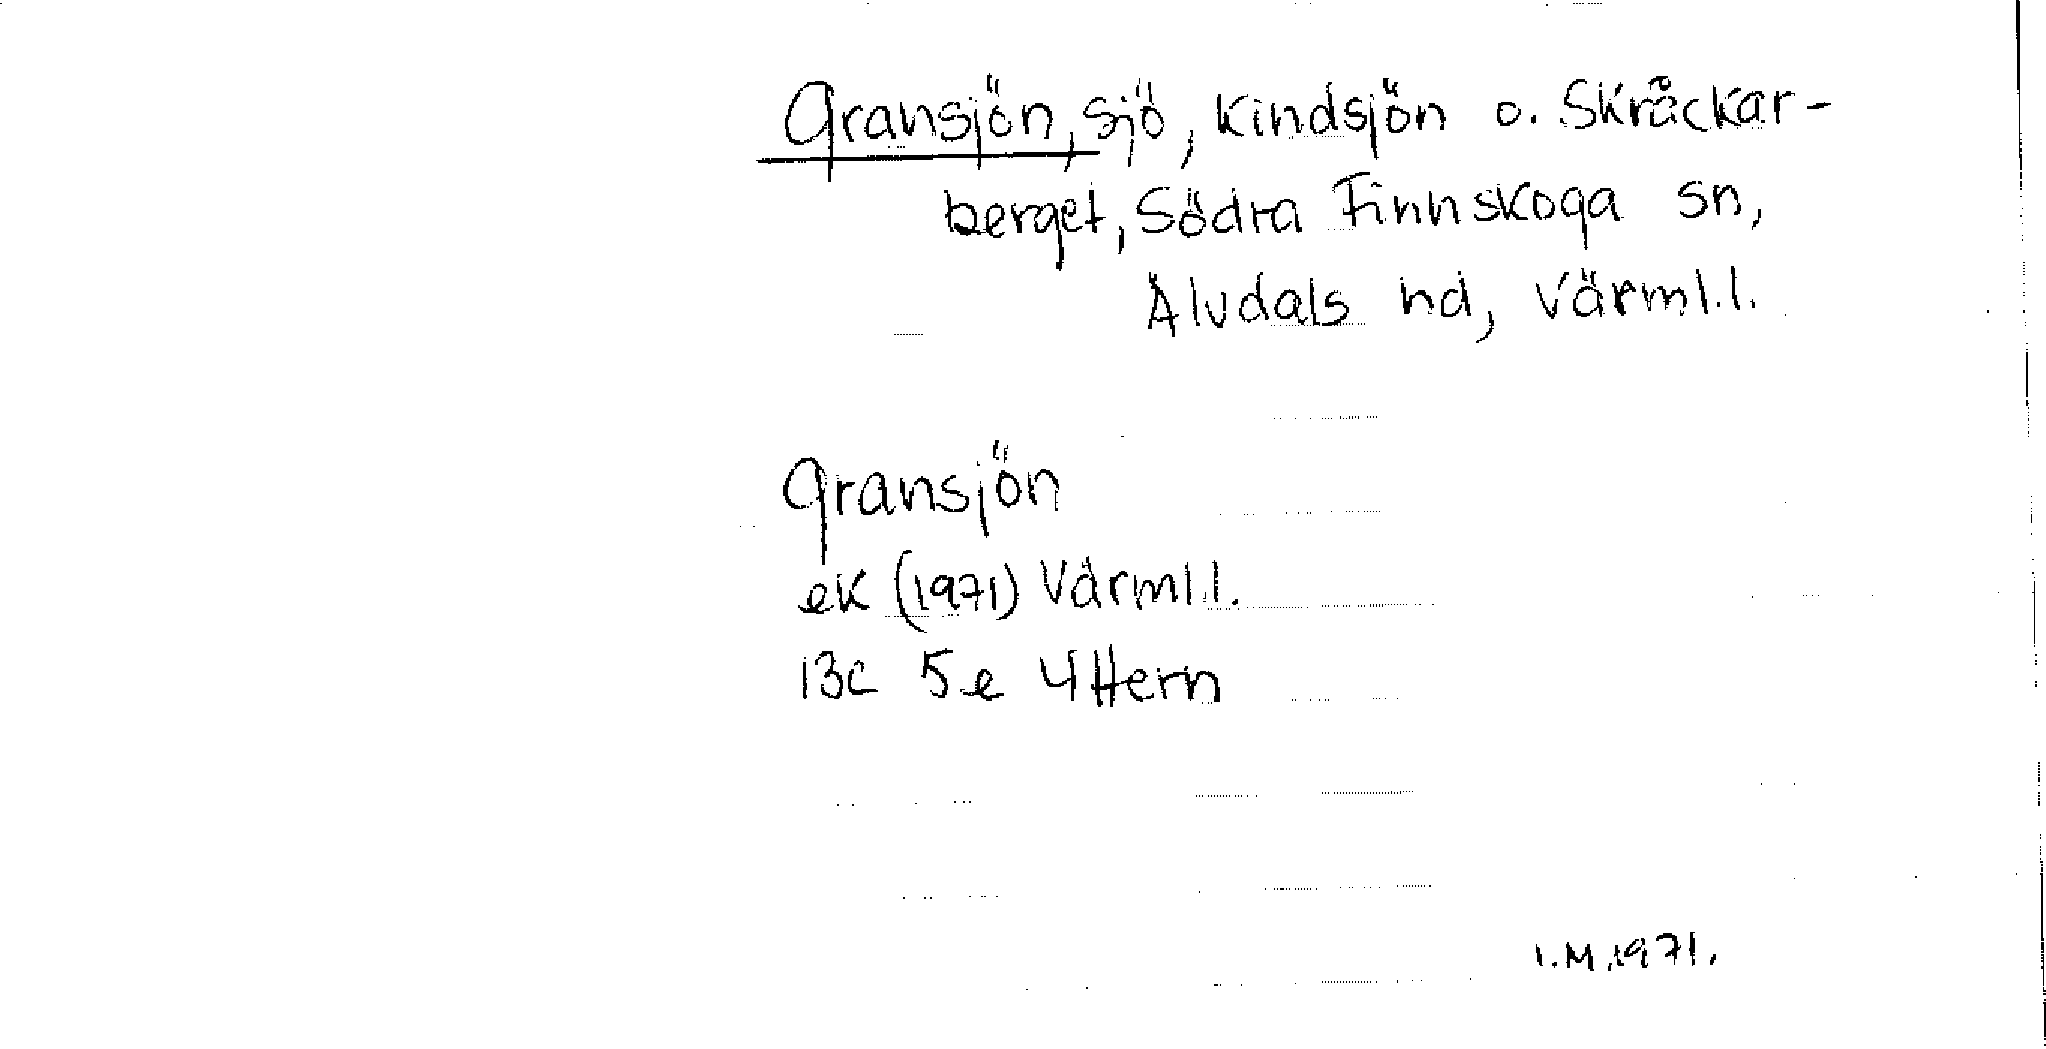 Gransjön, sjö, Kindsjön o. Skråckar-
berget, Södra Finnskoga sn,
Älvdals hd, Värml.l.
Gransjön
ek (1971) Värml.l.
13c 5e 4Hern
I.M.1971.